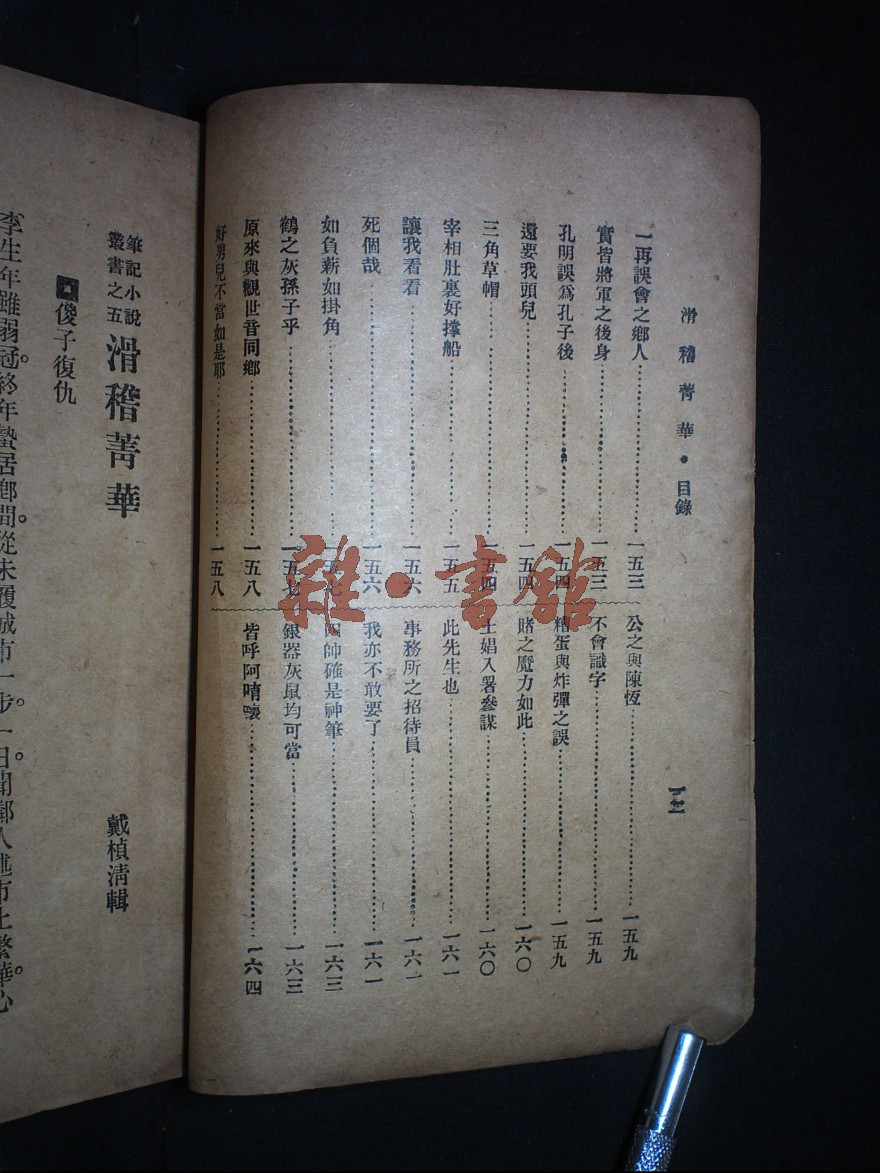 滑稽菁華●目錄
一再誤會之鄉人……一五三
實皆將軍之後身……一五三
孔明誤爲孔子後……一五四
還要我頭兒……一五四
三角草帽……一五四
宰相肚裏好撑船……一五五
讓我看看……一五六
死個哉……一五六
如負薪如掛角……一五七
鶴之灰孫子乎……一五七
原來與觀世音同鄉……一五八
好男兒不當如是耶……一五八
公之與陳恆……一五九
不會識字……一五九
糟蛋與炸彈之誤……一五九
賭之魔力如此……一六〇
土娼入署參謀……一六〇
此先生也……一六一
事務所之招待員……一六一
我亦不敢要了……一六一
四帥確是神筆……一六三
銀器灰鼠均可當……一六三
皆呼阿唷……一六四
筆記小說叢書之五
滑稽菁華
戴楨清輯
傻子復仇
李生年雖弱冠。終年蟄居鄉間。從未履城市一步。一日聞鄰人述市上繁華。心
雜·書館